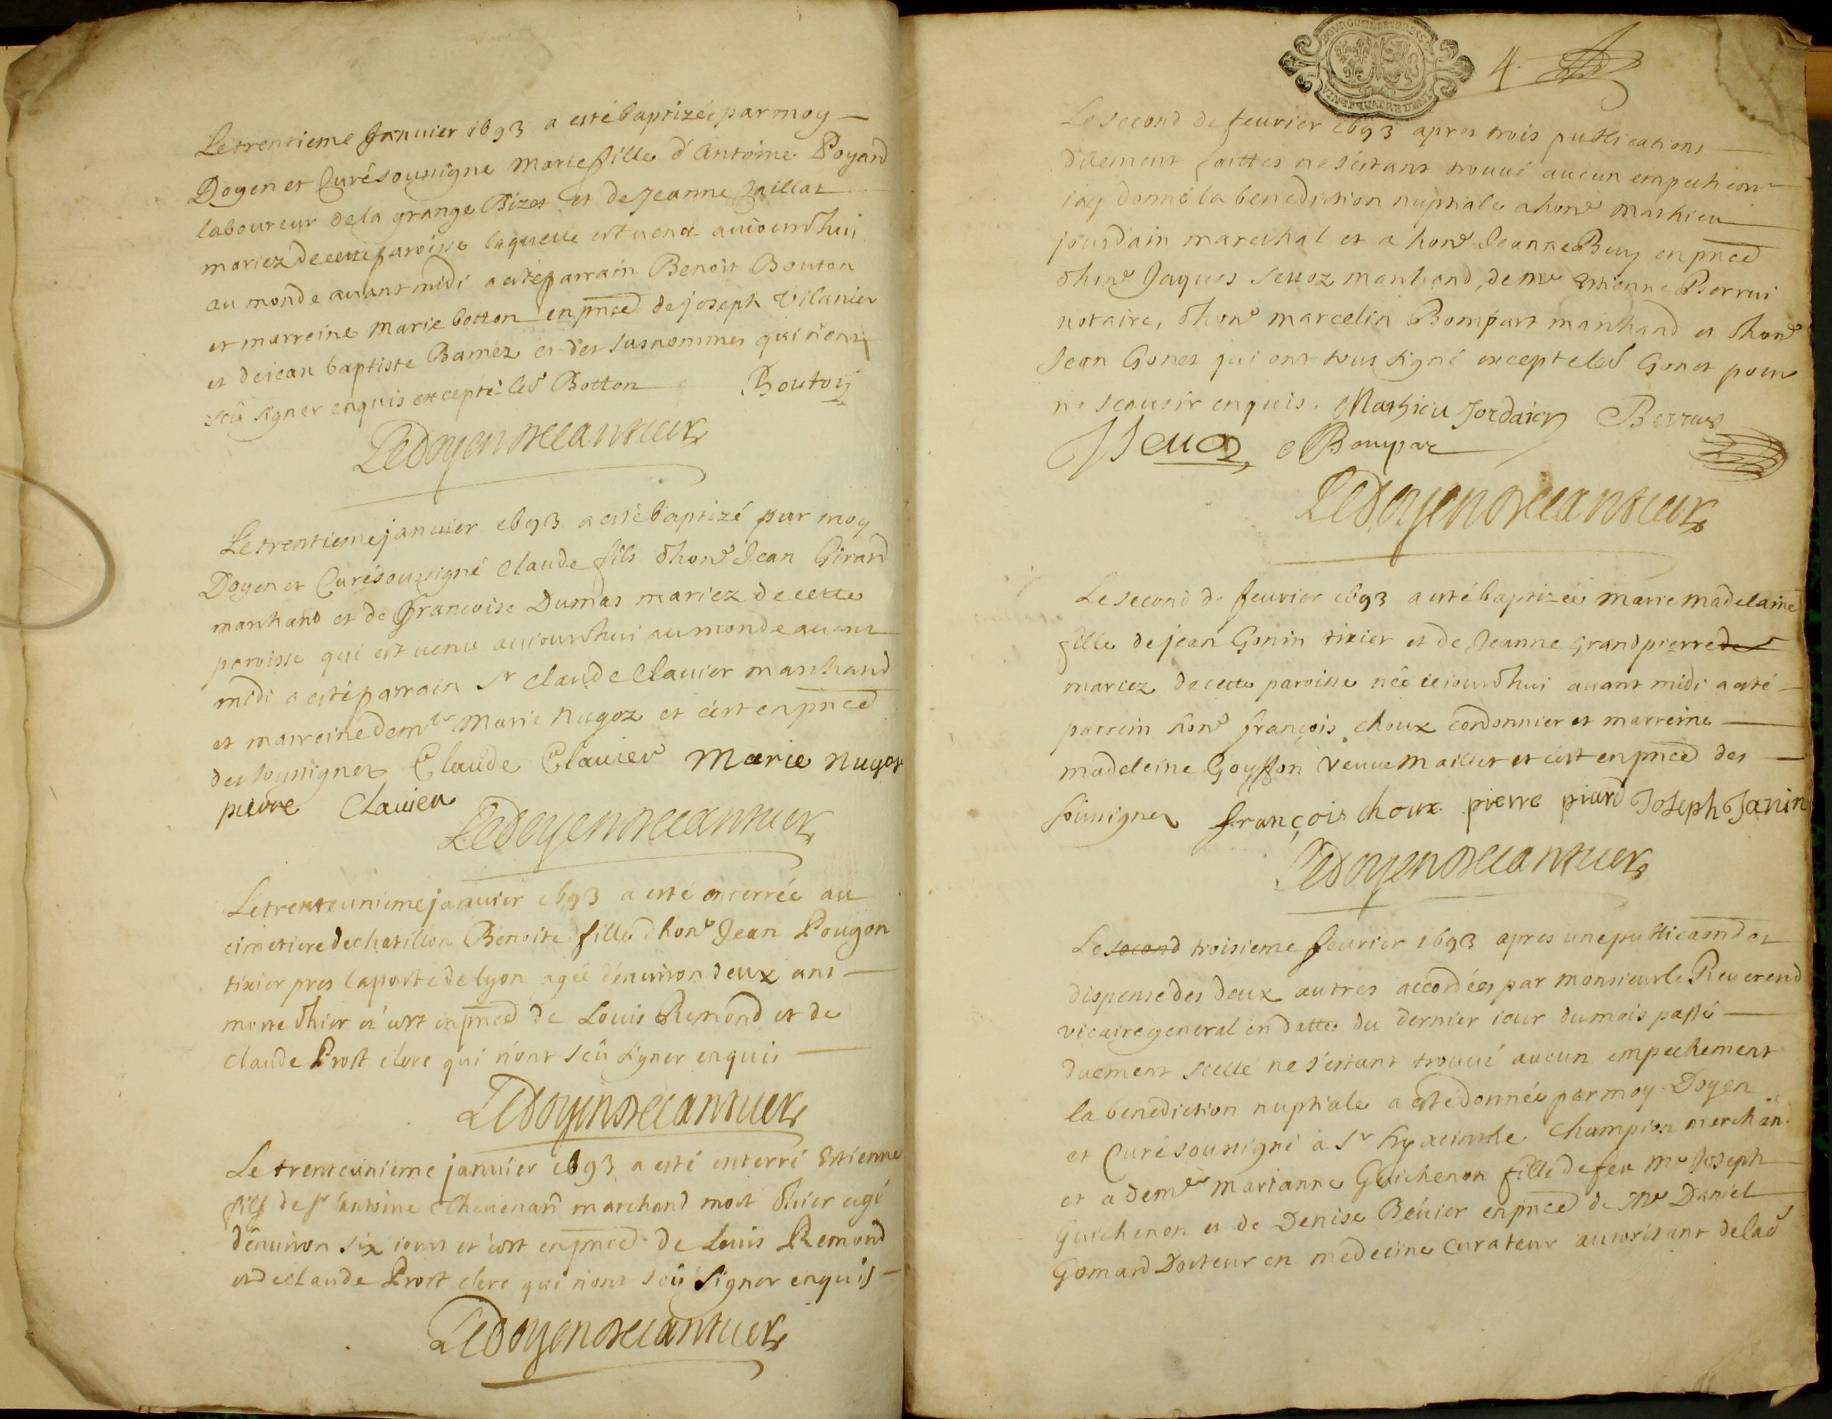 Le trentieme Janvier 1693 a esté baptizée par moy
Doyen et Curé soussigne Marie fille d'Antoine Poyard
laboureur de la grange Bizet et de Jeanne Caillat
mariez de cette paroisse laquelle est venue auiourdhui
au monde avant midi a esté parrain Benoit Bouton
et marreine Marie botton en pnce de joseph Vilanier
et de iean baptiste Bamez et des susnommes qui n'ont
sceu signer enquis excepté led Botton Boutoy
Ledoyen Decantueur
Le trentieme janvier 1693 a esté baptizé par moy
Doyen et Curé sousigné Claude fils dhone Jean Girard
marchand et de Francoise Dumas mariez de cette
paroisse qui est venu auiourdhui au monde avant
midi a esté parrain Sr Claude Clavier marchand
et marreine demlle Marie Nugoz et c'est en pnce
des soussignez Claude Clavier Marie nugoz
pierre Clavier
Ledoyen Decantueur
Le trenteunieme janvier 1693 a esté enterrée au
cimetiere de chatillon Benoite fille dhone Jean Pougon
tixier pres la porte de lyon agée denviron deux ans
morte dhier et c'est en pnce de Louis Remond et de
Claude Prost clerc qui n'ont sceu signer enquis
Ledoyen Decantueur
Le trenteunieme janvier 1693 a esté enterré Estienne
fils de Sr Antoine Chevenard marchand mort dhier agé
denviron six iours et c'est en pnce de Louis Remond
et de Claude Prost clerc qui n'ont sceu signer enquis
Ledoyen Decantueur
4
Le second de fevrier 1693 apres trois publications
düement faittes ne s'estant trouvé aucun empechemt
iay donné la benediction nuptiale a hone Mathieu
jourdain marechal et a hone Jeanne Buy en pnce
dhone Jaques Sevoz marchand, de me Estienne Perrui
notaire, dhone marcelin Bompart marchand et dhone
Jean Gonet qui ont tous signé excepté led Gonet pour
ne scavoir enquis. Mathieu Jordain
Bompar
Ledoyen Decantueur
Le second de fevrier 1693 a esté baptizée marie madelaine
fille de jean Gonin tixier et de Jeanne grandpierre de
mariez de cette paroisse née ce iourdhui avant midi a esté
parrein hone françois choux cordonnier et marreine
madeleine Goyffon veuve maillet et c'est en pnce des
soussignez françois choux pierre piard Joseph Janin
Ledoyen Decantueur
Le second troisieme fevrier 1693 apres une publicaon et
dispense des deux autres accordées par monsieur le Reverend
vicaire general en datte du dernier iour du mois passé
duement scellé ne s'estant trouvé aucun empechement
la benediction nuptiale a esté donnée par moy Doyen
et Curé soussigné à Sr hyacinthe Champion merchan
et a demlle marianne Guichenon fille de feu mr Joseph
Guichenon et de Denise Bévier en pnce de Mr Daniel
Gomard Docteur en medecine curateur autorisant de lad